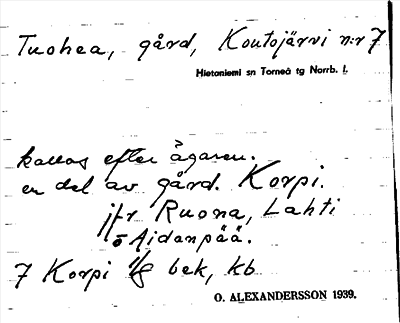 Tuohea, gård, Koutojärvi n:r 7
Hietaniemi sn Torneå tg Norrb. l.
kallas efter ägaren.
en del av gård. Korpi.
jfr Ruona, Lahti
o Aidanpää.
7 Korpi 1/8 bek, kb
O. ALEXANDERSSON 1939.